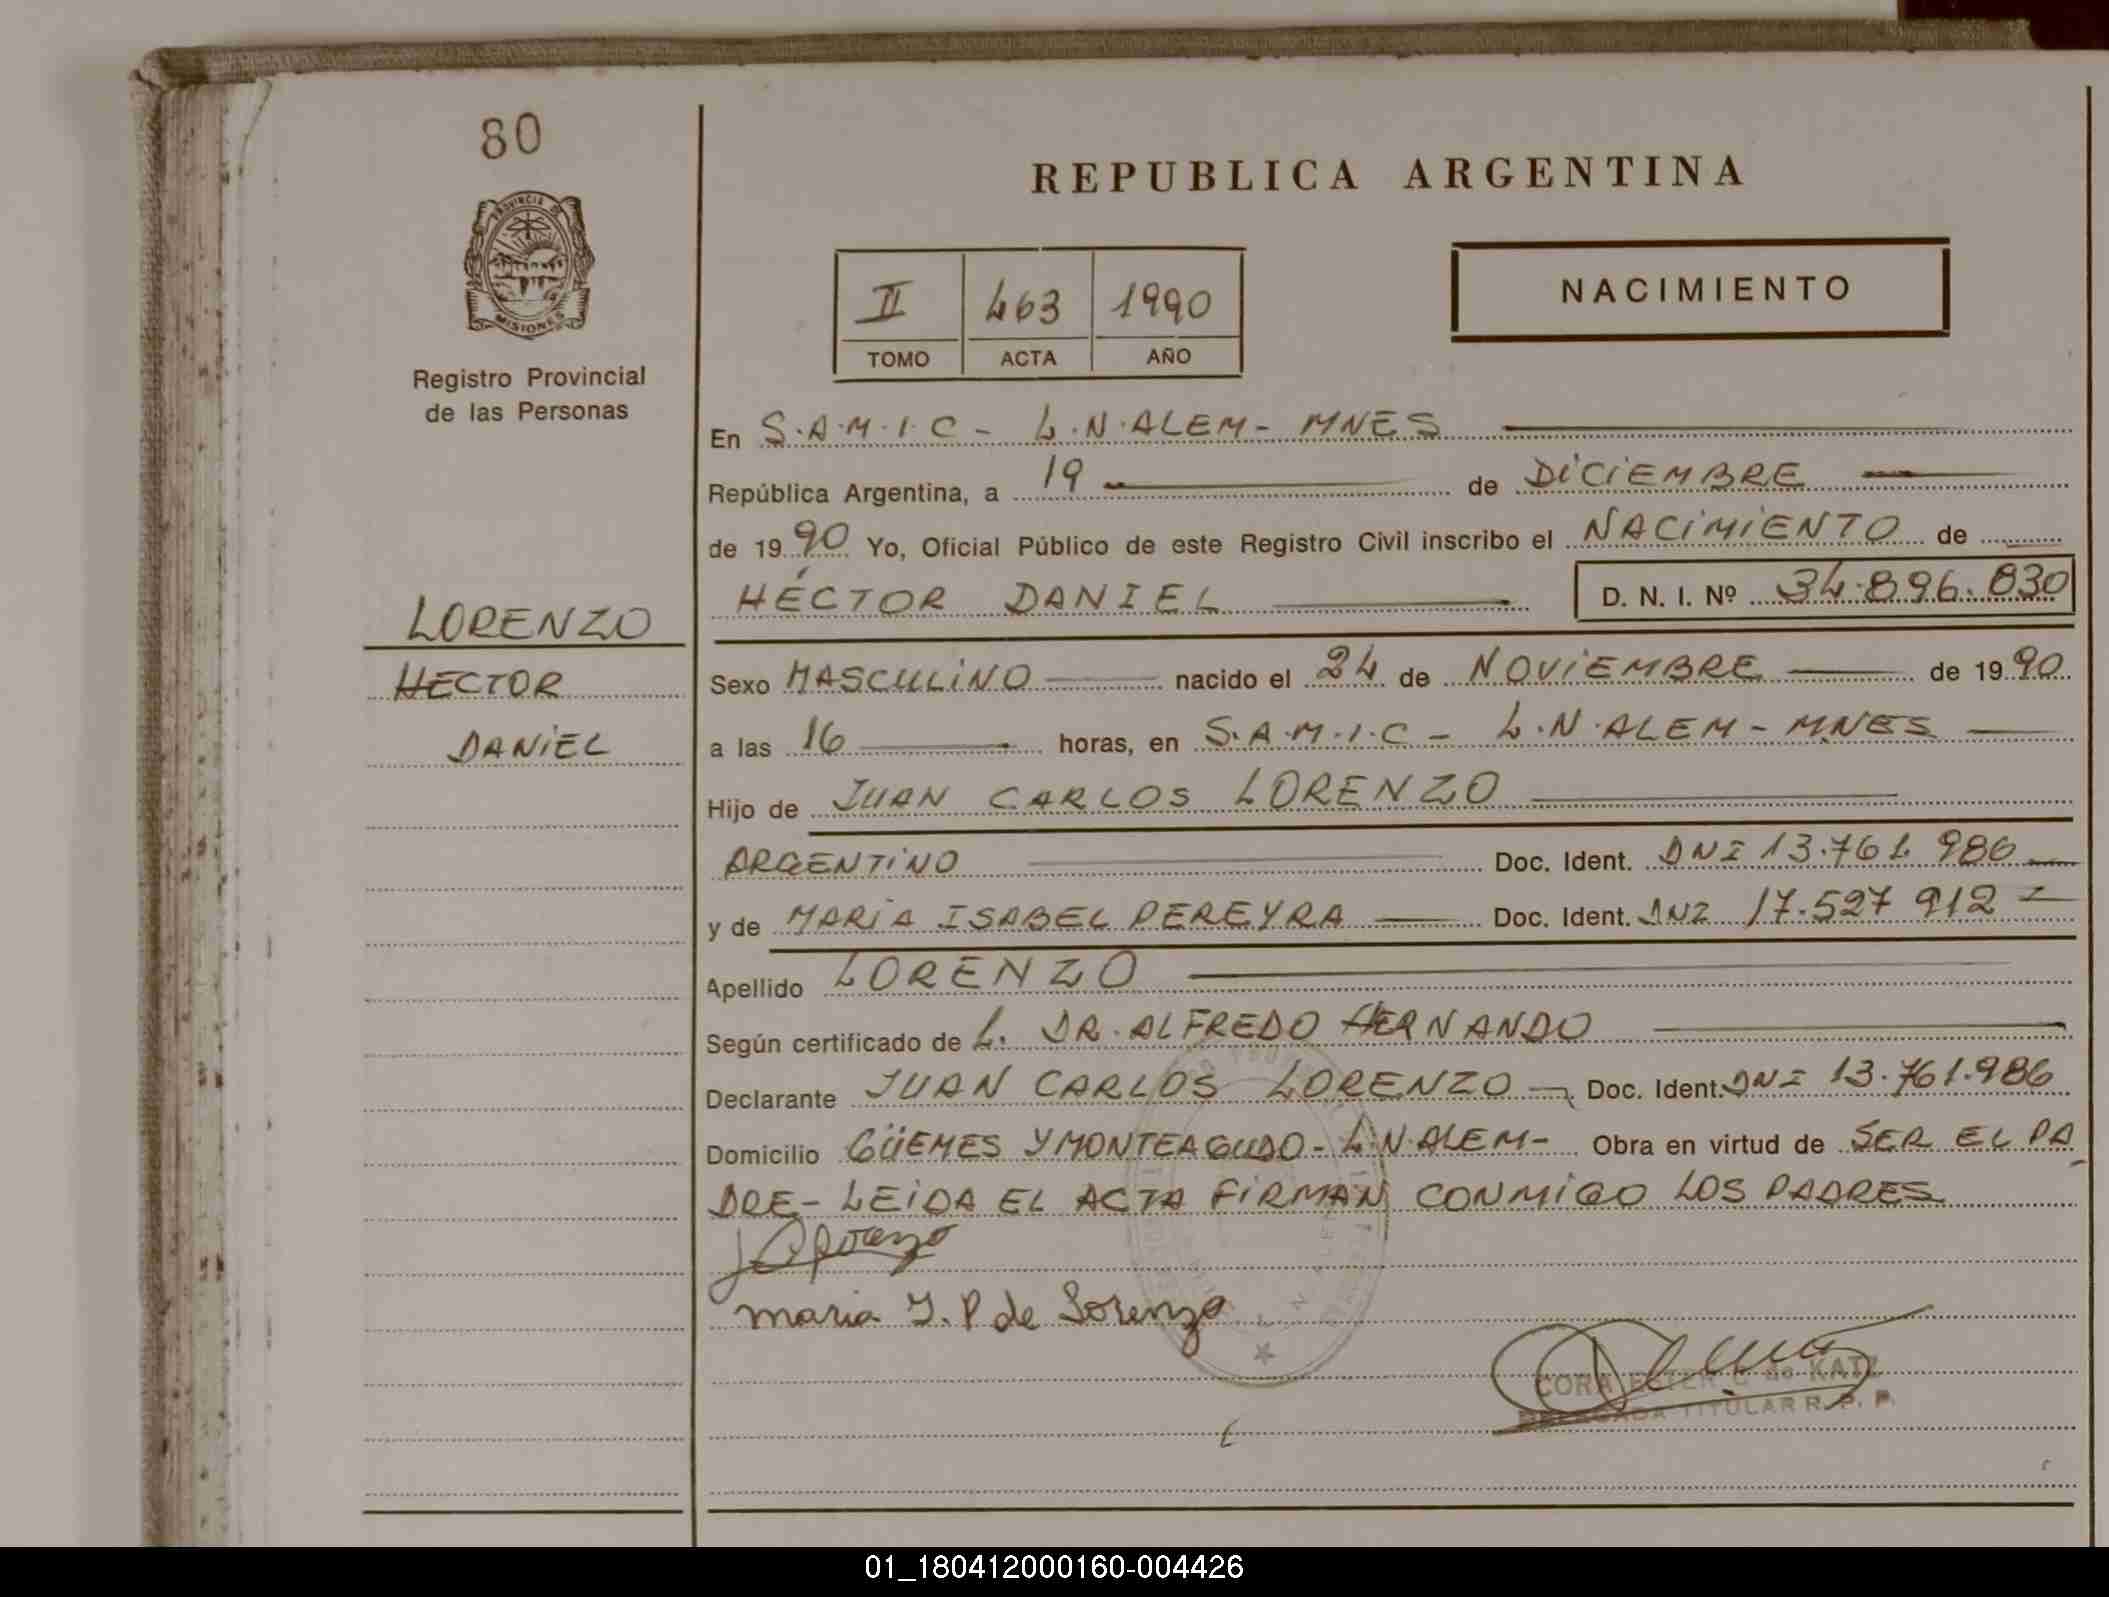 80
REPUBLICA ARGENTINA
PROVINCIA DE
MISIONES
Registro Provincial
de las Personas
II 463 1990
TOMO ACTA AÑO
NACIMIENTO
En S.A.M.I.C - L.N.ALEM - MNES
República Argentina, a 19 de DICIEMBRE
de 1990 Yo, Oficial Público de este Registro Civil inscribo el NACIMIENTO de
HÉCTOR DANIEL D. N. I. Nº 34.896.830
LORENZO
HECTOR
DANIEL
Sexo MASCULINO nacido el 24 de NOVIEMBRE de 1990
a las 16 horas, en S.A.M.I.C - L.N.ALEM - MNES
Hijo de JUAN CARLOS LORENZO
ARGENTINO Doc. Ident. DNI 13.761.986
y de MARÍA ISABEL PEREYRA Doc. Ident. DNI 17.527 912
Apellido LORENZO
Según certificado de L. DR. ALFREDO HERNANDO
Declarante JUAN CARLOS LORENZO Doc. Ident. DNI 13.761.986
Domicilio GÜEMES Y MONTEAGUDO - L.N.ALEM - Obra en virtud de SER EL PA
DRE - LEIDA EL ACTA FIRMAN CONMIGO LOS PADRES
maria I. P de Lorenzo
CORA ESTER C de KATZ
DELEGADA TITULAR R. P. P.
01_180412000160-004426